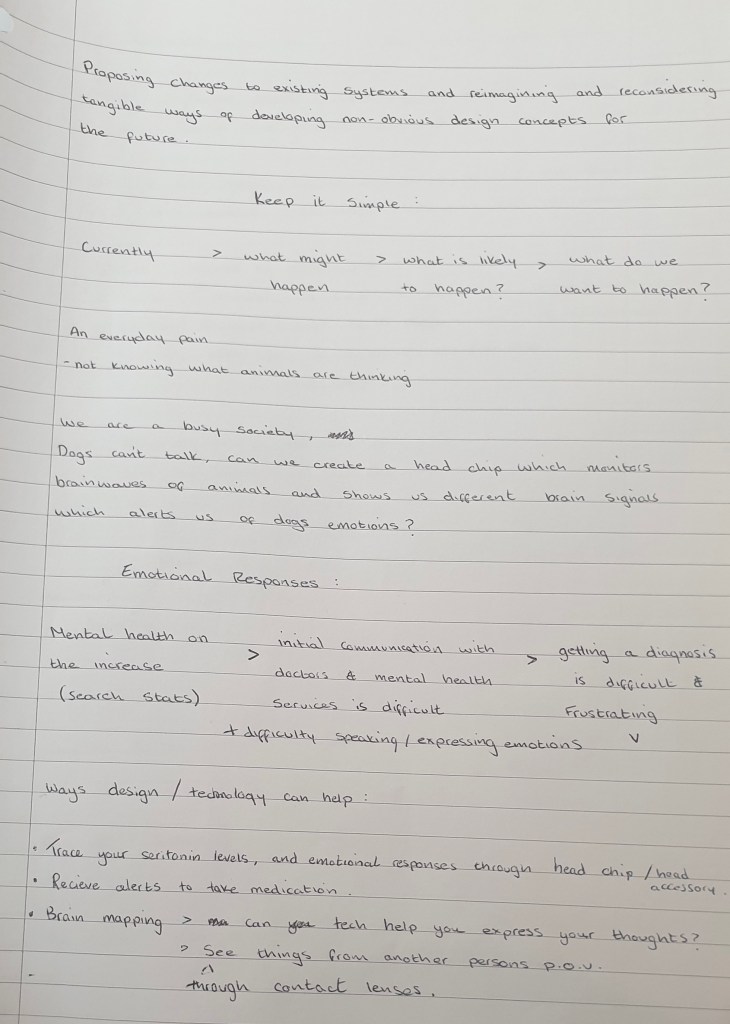 Proposing changes to existing systems and reimagining and reconsidering
tangible ways of developing non-obvious design concepts for
the future.
Keep it simple :
Currently > what might > what is likely > what do we
happen to happen? want to happen?
An everyday pain
- not knowing what animals are thinking
We are a busy society,
Dogs can't talk, can we create a head chip which monitors
brainwaves of animals and shows us different brain signals
which alerts us of dogs emotions?
Emotional Responses :
Mental health on > initial communication with > getting a diagnosis
the increase doctors & mental health is difficult &
(search stats) services is difficult Frustrating
+ difficulty speaking / expressing emotions v
Ways design / technology can help :
• Trace your seritonin levels, and emotional responses through head chip / head
accessory.
• Recieve alerts to take medication.
• Brain mapping > can tech help you express your thoughts?
> See things from another persons p.o.v.
^
through contact lenses.
-